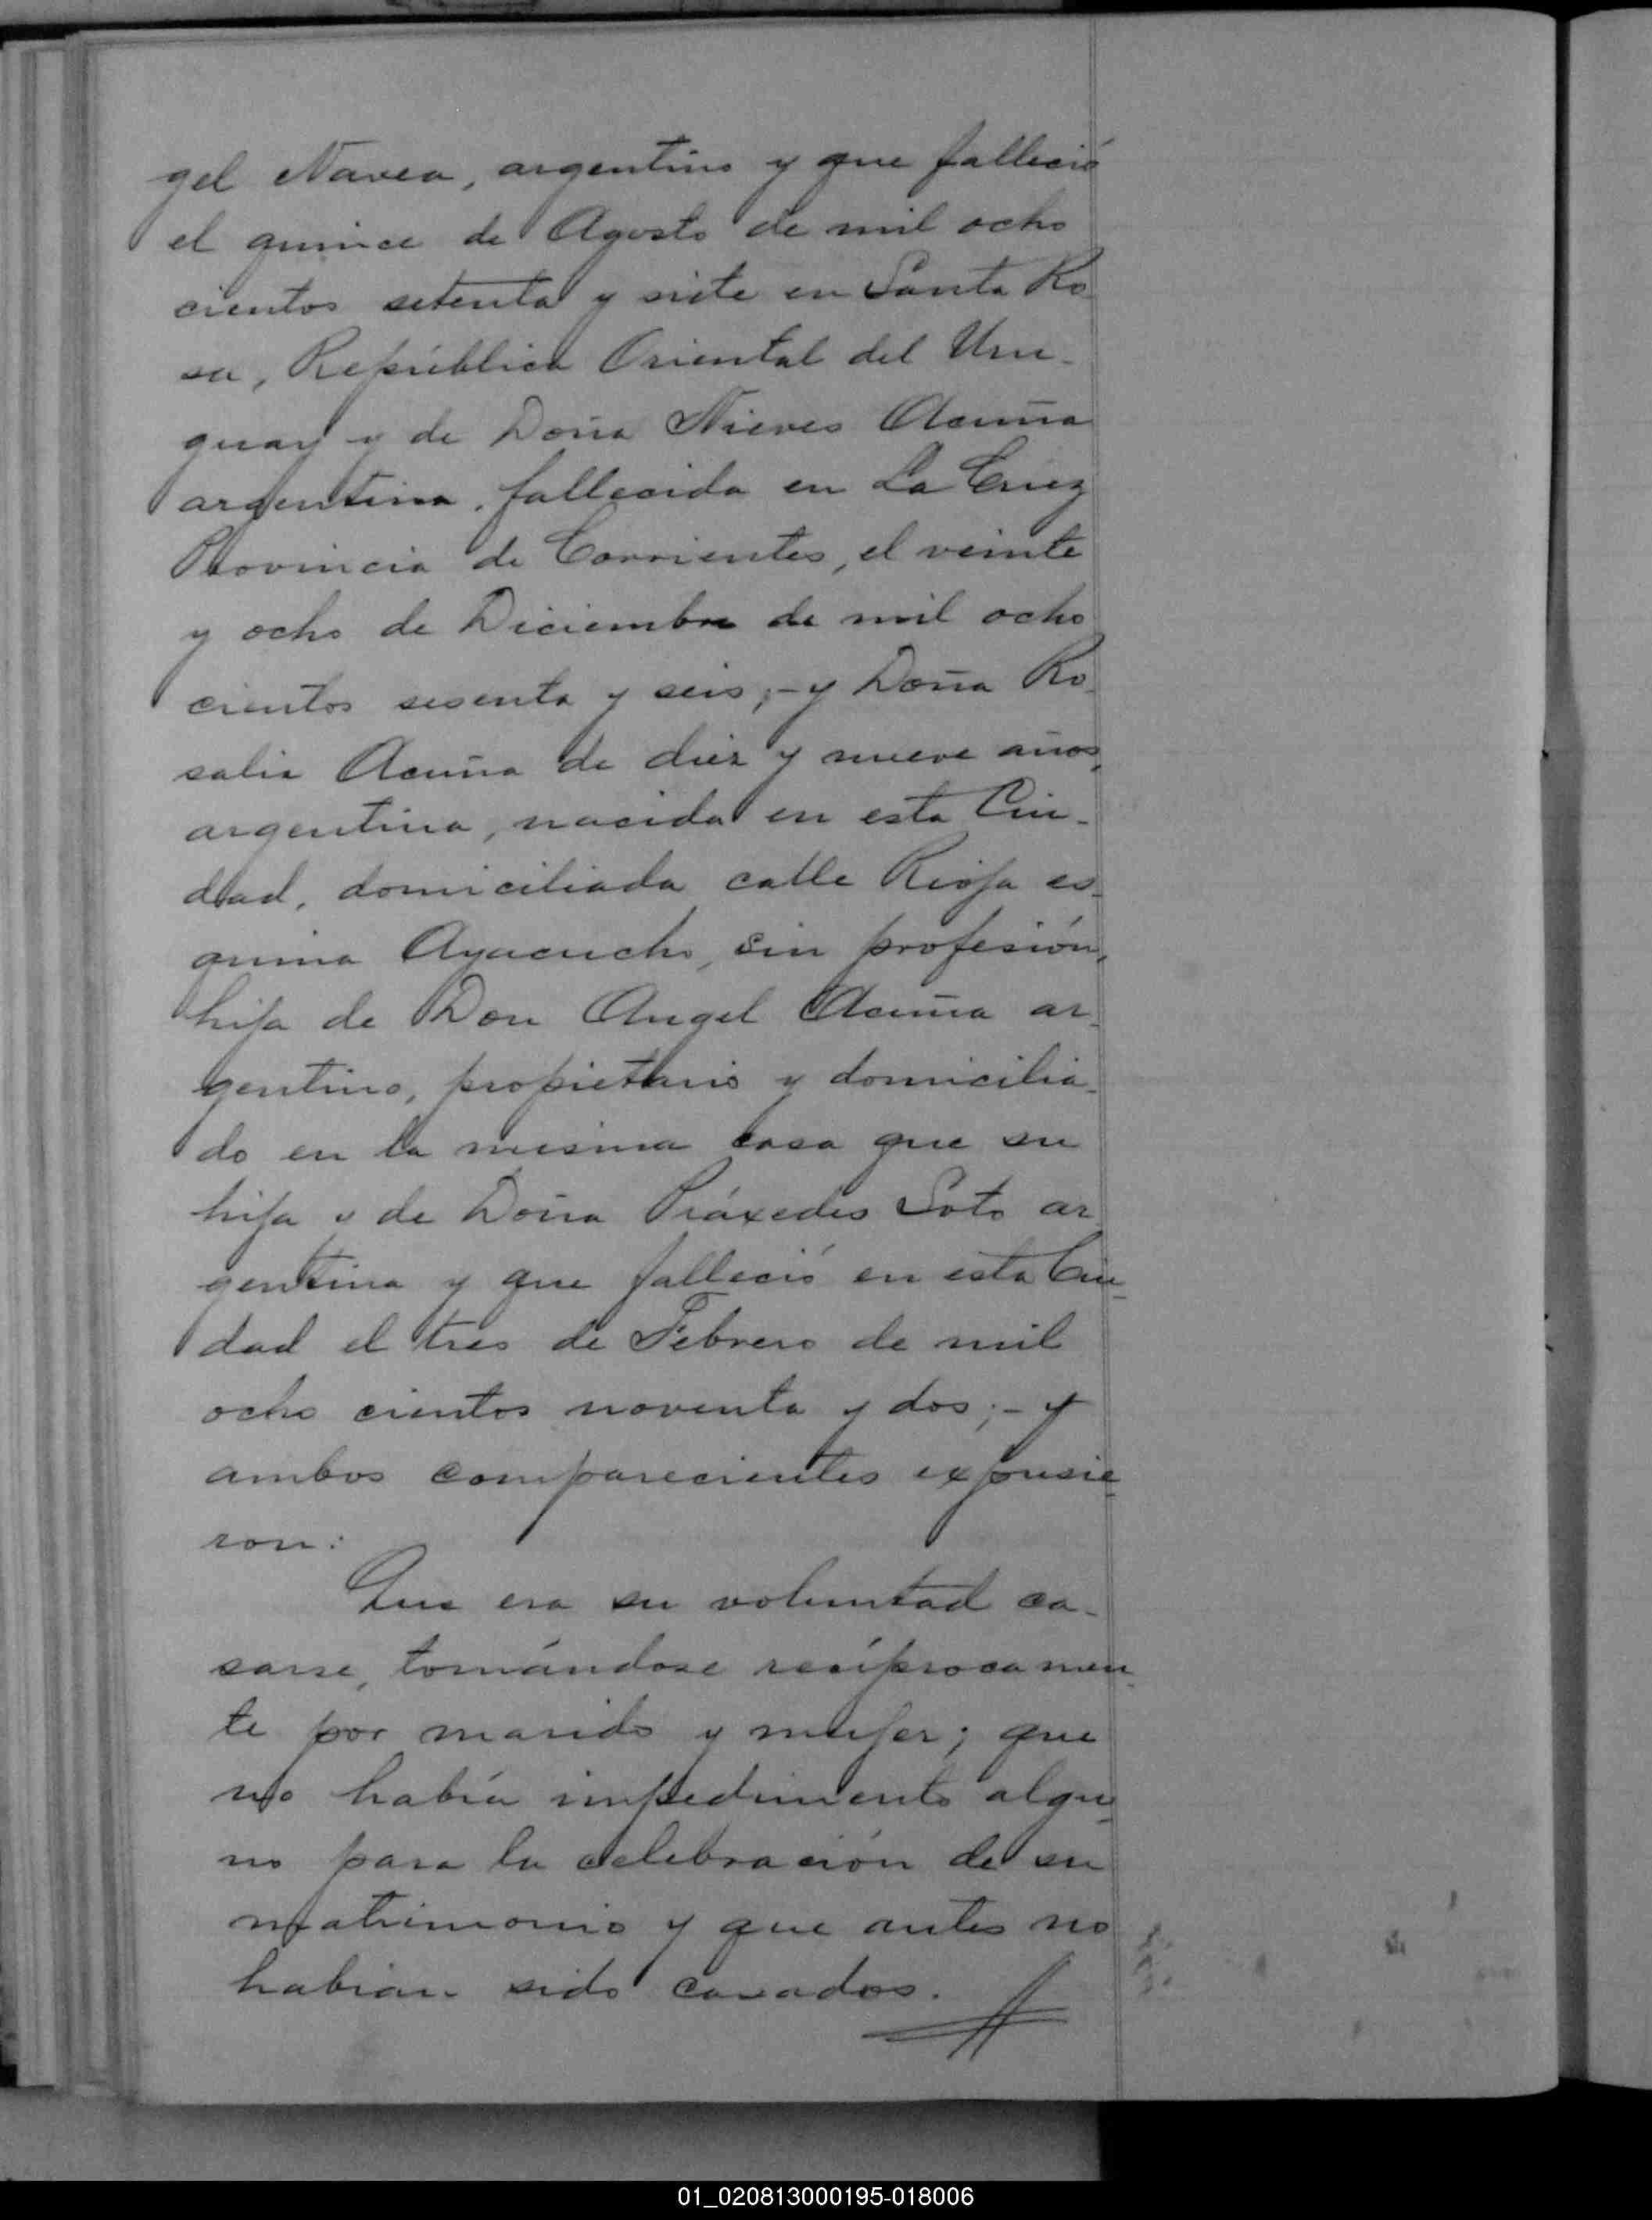 gel Navea, argentino y que falleció
el quince de Agosto de mil ocho
cientos setenta y siete en Santa Ro
sa, República Oriental del Uru-
guay y de Doña Nieves Acuña
argentina, fallecida en La Cruz
Provincia de Corrientes, el veinte
y ocho de Diciembre de mil ocho
cientos sesenta y seis;- y Doña Ro-
salia Acuña de diez y nueve años,
argentina, nacida en esta Ciu-
dad, domiciliada calle Rioja es-
quina Ayacucho, sin profesión,
hija de Don Angel Acuña ar-
gentino, propietario y domicilia-
do en la misma casa que su
hija y de Doña Práxedes Soto ar
gentina y que falleció en esta Ciu-
dad el tres de Febrero de mil
ocho cientos noventa y dos;- y
ambos comparecientes expusie-
ron:
Que era su voluntad ca-
sarse, tomándose recíprocamen-
te por marido y mujer; que
no había impedimento algu-
no para la celebración de su
matrimonio y que antes no
habian sido casados.
01_020813000195-018006